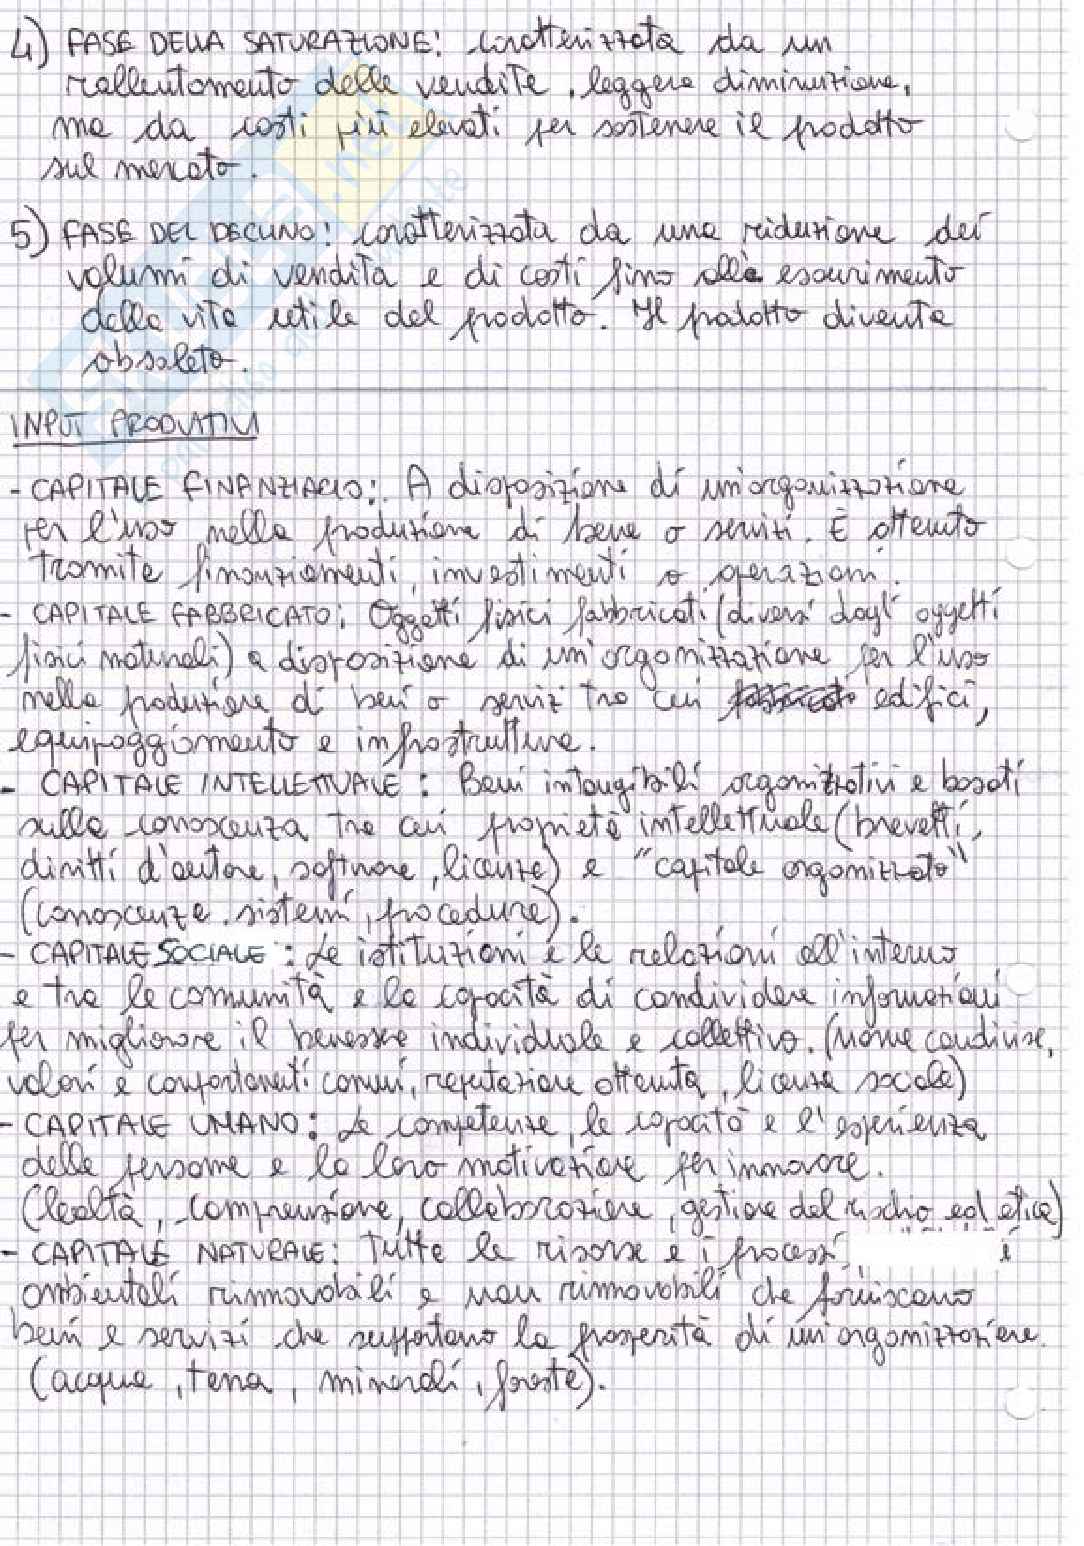 4) FASE DELLA SATURAZIONE: caratterizzata da un
rallentamento delle vendite, leggera diminuzione,
ma da costi più elevati per sostenere il prodotto
sul mercato.
5) FASE DEL DECLINO: caratterizzata da una riduzione dei
volumi di vendita e di costi fino alla esaurimento
della vita utile del prodotto. Il prodotto diventa
obsoleto.
INPUT PRODUTTIVI
- CAPITALE FINANZIARIO: A disposizione di un'organizzazione
per l'uso nella produzione di bene o servizi. È ottenuto
tramite finanziamenti, investimenti o operazioni.
- CAPITALE FABBRICATO: Oggetti fisici fabbricati (diversi dagl' oggetti
fisici naturali) a disposizione di un'organizzazione per l'uso
nella produzione di beni o serviz tra cui edifici,
equipaggiamento e infrastrutture.
- CAPITALE INTELLETTUALE: Beni intangibili organizzativi e basati
sulla conoscenza tra cui proprietà intellettuale (brevetti,
diritti d'autore, software, licenze) e "capitale organizzato"
(conoscenze, sistemi, procedure).
- CAPITALE SOCIALE: Le istituzioni e le relazioni all'interno
e tra le comunità e la capacità di condividere informazioni
per migliorare il benessere individuale e collettivo. (norme condivise,
valori e comportamenti comuni, reputazione ottenuta, licenza sociale)
- CAPITALE UMANO: Le competenze, le capacità e l'esperienza
delle persone e la loro motivazione per innovare.
(lealtà, comprensione, collaborazione, gestione del rischio ed etica)
- CAPITALE NATURALE: Tutte le risorse e i processi
ambientali rinnovabili e non rinnovabili che forniscono
beni e servizi che supportano la prosperità di un'organizzazione.
(acqua, terra, minerali, foreste).